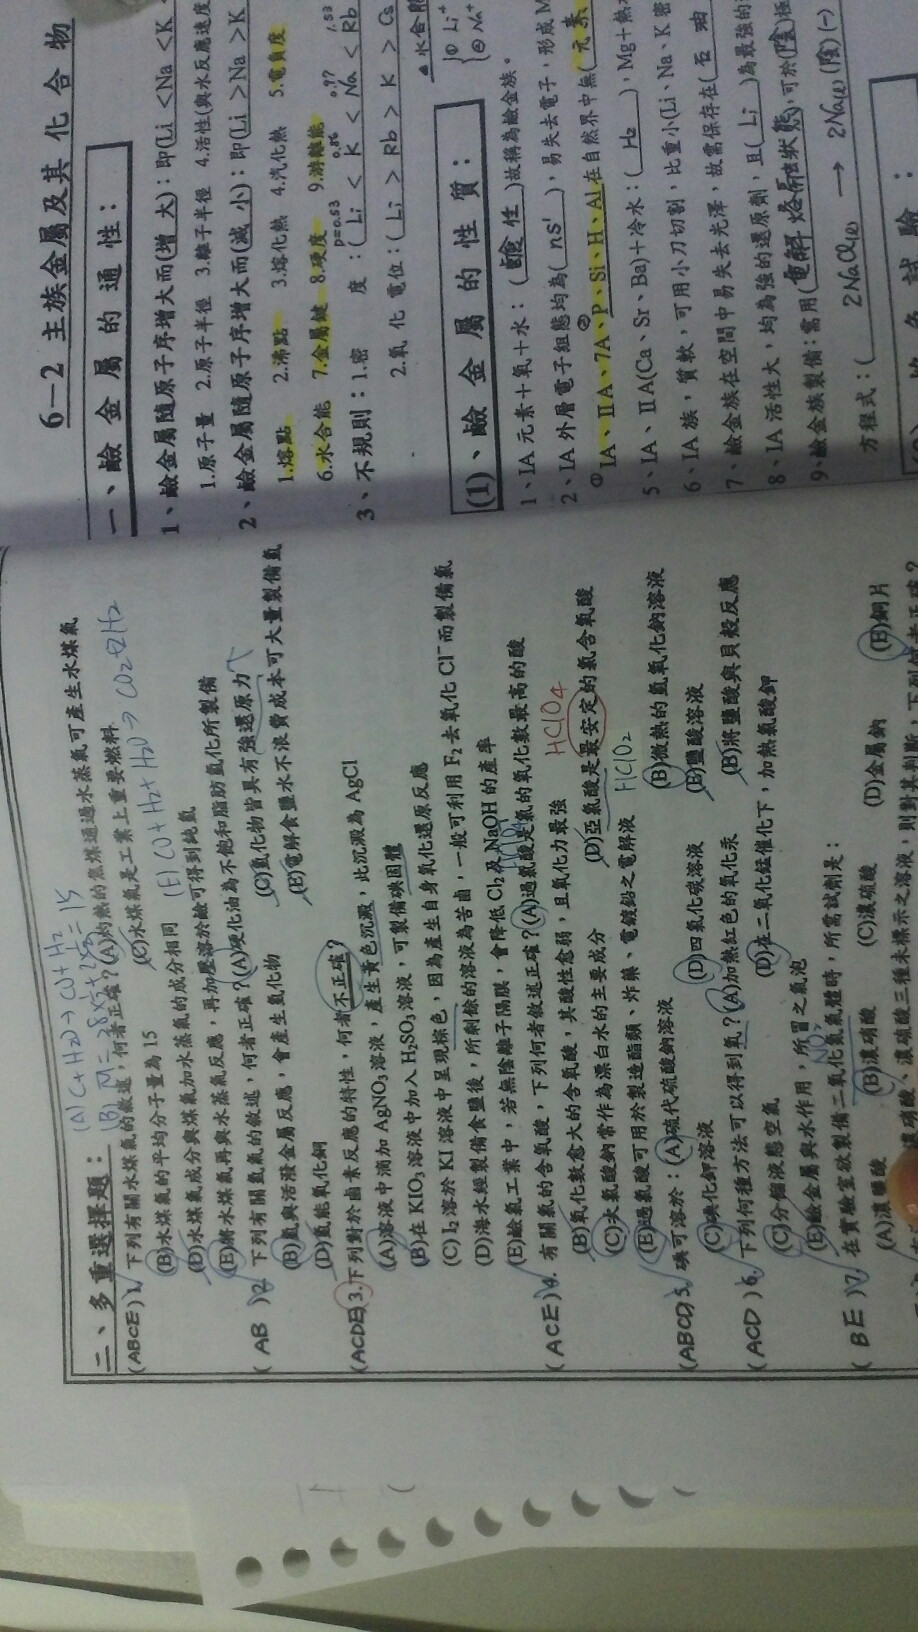 二、多重選擇題：
(A) C+H2O→CO+H2
(ABCE) 1. 下列有關水煤氣的敘述，何者正確？(A)灼熱的焦煤通過水蒸氣可產生水煤氣
(B)水煤氣的平均分子量為15 (C)水煤氣是工業上重要燃料
(D)水煤氣成分與煤氣加水蒸氣的成分相同 (E) CO+H2+H2O→CO2+2H2
(E)將水煤氣再與水蒸氣反應，再加壓溶於鹼可得到純氫
(AB) 2. 下列有關氫氣的敘述，何者正確？(A)硬化油為不飽和脂肪氫化所製備
(B)氫與活潑金屬反應，會產生氫化物 (C)氫化物皆具有強還原力
(D)氫能氧化銅 (E)電解食鹽水不浪費成本可大量製備氫
(ACDE) 3. 下列對於鹵素反應的特性，何者不正確？
(A)溶液中滴加AgNO3溶液，產生黃色沉澱，此沉澱為AgCl
(B)在KIO3溶液中加入H2SO3溶液，可製備碘固體
(C) I2溶於KI溶液中呈現棕色，因為產生自身氧化還原反應
(D)海水經製備食鹽後，所剩餘的溶液為苦鹵，一般可利用F2去氧化Cl⁻而製備氯
(E)鹼氯工業中，若無陰離子隔膜，會降低Cl2及NaOH的產率
(ACE) 4. 有關氯的含氧酸，下列何者敘述正確？(A)過氯酸是氯的氧化數最高的酸
HClO4
(B)氧化數愈大的含氧酸，其酸性愈弱，且氧化力最強
(C)次氯酸鈉常作為漂白水的主要成分 (D)亞氯酸是最安定的氯含氧酸
HClO2
(E)過氯酸可用於製造酯類、炸藥、電鍍鉛之電解液
(ABCD) 5. 碘可溶於：(A)硫代硫酸鈉溶液 (B)微熱的氫氧化鈉溶液
(C)碘化鉀溶液 (D)四氯化碳溶液 (E)鹽酸溶液
(ACD) 6. 下列何種方法可以得到氧？(A)加熱紅色的氧化汞 (B)將鹽酸與貝殼反應
(C)分餾液態空氣 (D)在二氧化錳催化下，加熱氯酸鉀
(E)鹼金屬與水作用，所冒之氣泡
(BE) 7. 在實驗室欲製備二氧化氮氣體時，所需試劑是：
NO2
(A)濃鹽酸 (B)濃硝酸 (C)濃硫酸 (D)金屬鈉 (E)銅片
濃硝酸、濃硫酸三種未標示之溶液，則對其判斷，下列何者正確？
6-2 主族金屬及其化合物
一、鹼金屬的通性：
1、鹼金屬隨原子序增大而(增大)：即(Li < Na < K
1.原子量 2.原子半徑 3.離子半徑 4.活性(與水反應速度
2、鹼金屬隨原子序增大而(減小)：即(Li > Na > K
1.熔點 2.沸點 3.熔化熱 4.汽化熱 5.電負度
6.水合能 7.金屬鍵 8.硬度 9.游離能
3、不規則：1.密度：(Li < K < Na < Rb
2.氧化電位：(Li > Rb > K > Cs
(1)、鹼金屬的性質：
1、IA元素＋氧＋水：(鹼性)故稱為鹼金族。
2、IA外層電子組態均為(ns¹)，易失去電子，形成M
IA、ⅡA、7A、P、Si、H、Al在自然界中無(元素
5、IA、ⅡA(Ca、Sr、Ba)＋冷水：(H2)，Mg＋熱
6、IA族，質軟，可用小刀切割，比重小(Li、Na、K密
7、鹼金族在空間中易失去光澤，故需保存在(石油
8、IA活性大，均為強的還原劑，且(Li)為最強的
9、鹼金族製備：需用(電解熔融狀態)，可於(陰)極
方程式：(2NaCl(l) → 2Na(l)(陰)(−)